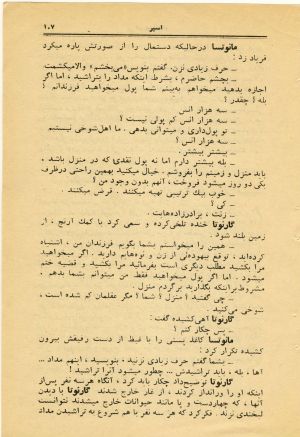 ۱۰۷ اسیر
مانونسا درحالیکه دستمال را از صورتش پاره میکرد
فریاد زد :
ـ حرف زیادی نزن. گفتم بنویس «می‌بخشم» والامیکشمت.
ـ بچشم حاضرم ، بشرط اینکه مداد را بتراشید ، اما اگر
اجازه بدهید میخواهم به‌بینم شما پول میخواهید فرزندانم ؟
بله ؟ چقدر ؟
ـ سه هزار انس
ـ سه هزار انس کم پولی نیست ؟
ـ تو پول‌داری و میتوانی بدهی . ما اهل‌شوخی نیستیم
ـ سه هزار انس .
ـ بیشتر بیشتر .
ـ بله بیشتر دارم اما نه پول نقدی که در منزل باشد ،
باید منزل و زمینم را بفروشم . خیال میکنید بهمین راحتی درظرف
یکی دو روز میشود فروخت ، آنهم بدون وجود من ؟
ـ خوب بیک ترتیبی تهیه میکنند . قرض میکنند .
ـ کی ؟
ـ زنت ، برادرزاده‌هایت .
گارتوتا خنده تلخی‌کرده و سعی کرد با کمک آرنج ، از
زمین بلند شود .
ـ همین را میخواستم بشما بگویم فرزندان من ، اشتباه
کرده‌اند ، توقع بیهوده‌ئی از زن و نوه‌هایم دارید . اگر میخواهید
مرا بکشید مطلب دیگری است بفرمائید مرا بکشید و قضیه ختم
میشود . اما اگر پول میخواهید فقط من میتوانم بشما بدهم .
مشروط‌براینکه بگذارید برگردم منزل .
ـ چی گفتید ؟ منزل ؟ شما ؟ مگر عقلمان کم شده است ،
شوخی می‌کنید .
گارتوتا آهی‌کشیده گفت :
ـ پس چکار کنم ؟
مانونسا کاغذ پستی را با غیظ از دست رفیقش بیرون
کشیده تکرار کرد :
ـ بشما گفتم حرف زیادی نزنید ، بنویسید ، اینهم مداد ...
آها ، بله ، باید تراشیدش ... چطور میشود آنرا تراشید !
گارتوتا توضیح‌داد چکار باید کرد ، آنگاه هرسه نفر پس‌از
اینکه او را ورانداز کردند ، از غار خارج شدند گارتوتا با دیدن
آنها ، که چهاردست و پا مانند حیوانات خارج میشدند نتوانست
لبخندی نزند . فکرکرد که هر سه نفر با هم شروع به تراشیدن مداد